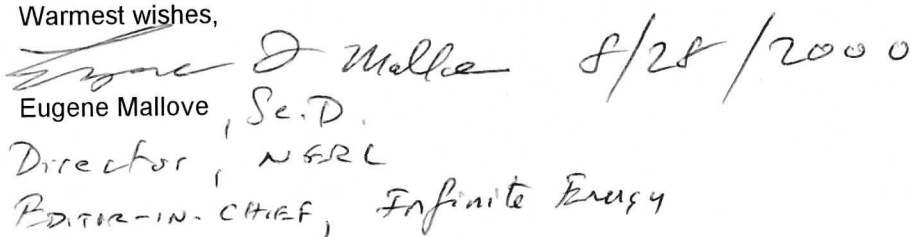 Warmest wishes,
Eugene F Mallove 8/28/2000
Eugene Mallove, Sc.D.
Director, NERL
EDITOR-IN-CHIEF, Infinite Energy